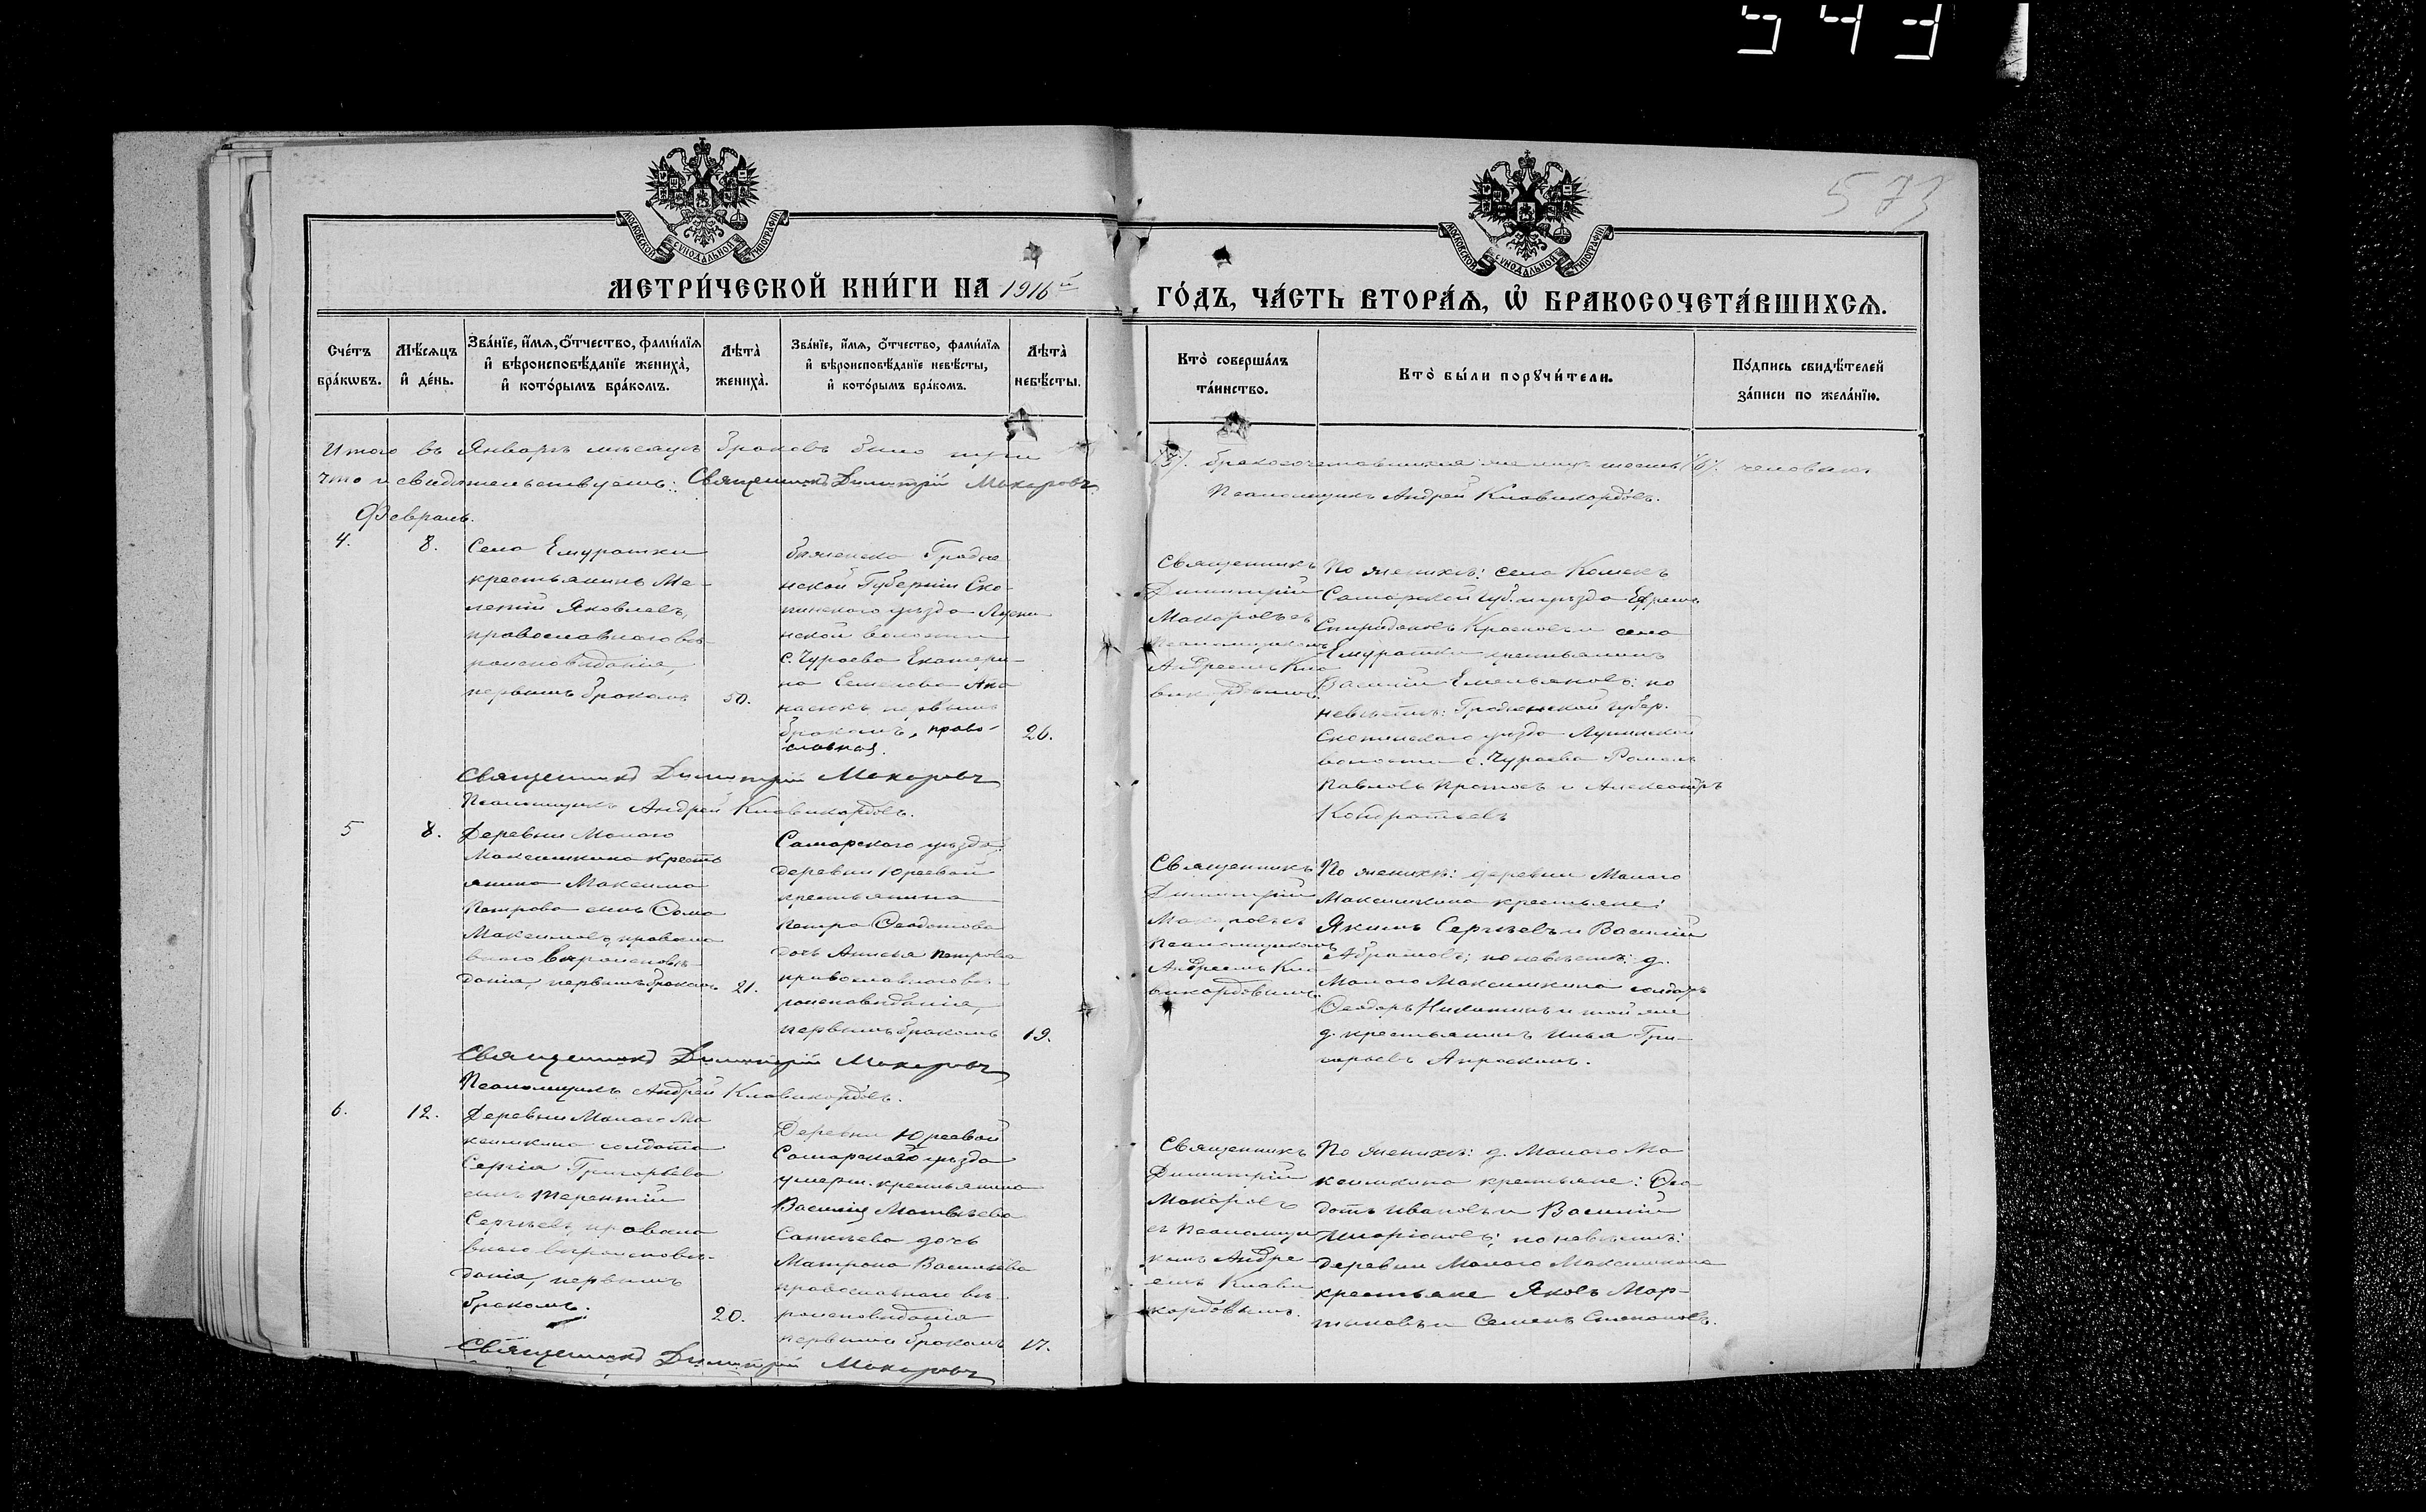 543
573
МОСКОВСКОЙ СУНОДАЛЬНОЙ ТИПОГРАФІИ
МОСКОВСКОЙ СУНОДАЛЬНОЙ ТИПОГРАФІИ
МЕТРИ́ЧЕСКОЙ КНИ́ГИ НА 1916й
ГО́ДЪ, ЧА́СТЬ ВТОРА́Ѧ, Ѽ БРАКОСОЧЕТА́ВШИХСѦ.
Сче́тъ
бра́кѡвъ.
Мѣ́сѧцъ
и҆ де́нь.
Зва́нїе, и҆́мѧ, ѻ҆́тчество, фами́лїѧ
и҆ вѣроисповѣ́данїе жениха̀,
и҆ кото́рымъ бра́комъ.
Лѣта̀
жениха̀.
Зва́нїе, и҆́мѧ, ѻ҆́тчество, фами́лїѧ
и҆ вѣроисповѣ́данїе невѣ́сты,
и҆ кото́рымъ бра́комъ.
Лѣта̀
невѣ́сты.
Кто̀ соверша́лъ
та́инство.
Кто̀ бы́ли порꙋчи́тели.
По́дпись свидѣ́телей
за́писи по жела́нїю.
Итого въ Январѣ мѣсяцѣ браковъ было три
(3). бракосочетавшихся же лицъ шесть (6). человекъ
что и свидѣтельствуетъ: Священникъ Димитрій Макаровъ
Псаломщикъ Андрей Клавикордовъ.
Февраль.
4.
8.
Села Емуратки
крестьянинъ Ме-
летій Яковлевъ,
православнаго вѣ-
роисповѣданія,
первымъ бракомъ
50.
Гродне
нской Губерніи
уѣзда
нской волости
с. Чураева Екатери-
на Семенова
первымъ
бракомъ, право-
славная.
26.
Священникъ
Димитрій
Макаровъ съ
псаломщикомъ
Андреемъ Кла
викордовымъ.
По женихѣ: села
Самарской губ. и уѣзда Ефремъ
Спиридоновъ и села
Емуратки крестьянинъ
Василій Емельяновъ: по
невѣстѣ: Гродненской Губер.
уѣзда
волости с. Чураева Романъ
Павловъ и Александръ
Кондратьевъ
Священникъ Димитрій Макаровъ
Псаломщикъ Андрей Клавикордовъ.
5
8.
Деревни Малаго
Максимкина кресть
янина Максима
Петрова сынъ
Максимовъ, правосла
внаго вѣроисповѣ-
данія, первымъ бракомъ
21.
Самарскаго уѣзда
деревни Юреевой
крестьянина
Петра Ѳеодотова
дочь Анисья Петрова
православнаго вѣ-
роисповѣданія,
первымъ бракомъ
19.
Священникъ
Димитрій
Макаровъ съ
псаломщикомъ
Андреемъ Кла
викордовымъ.
По женихѣ: деревни Малаго
Максимкина крестьяне:
Якимъ Сергѣевъ и Василій
Абрамовъ; по невѣстѣ: д.
Малаго Максимкина солдатъ
Ѳеодоръ Никитинъ и той же
д. крестьянинъ Илья Гри-
горьевъ
Священникъ Димитрій Макаровъ
Псаломщикъ Андрей Клавикордовъ.
6.
12.
Деревни Малаго Ма
ксимкина солдата
Сергія Григорьева
сынъ Терентій
Сергѣевъ, правосла
внаго вѣроисповѣ-
данія, первымъ
бракомъ.
20.
Деревни Юреевой
Самарскаго уѣзда
умерш. крестьянина
Василія Матвѣева
дочь
Матрона Васильева
православнаго вѣ-
роисповѣданія
первымъ бракомъ
17.
Священникъ
Димитрій
Макаровъ
съ псаломщи
комъ Андре
емъ Клави
кордовымъ.
По женихѣ: д. Малаго Ма
ксимкина крестьяне: Ѳео
дотъ Ивановъ и Василій
Иларіоновъ; по невѣстѣ:
деревни Малаго Максимкина
крестьяне Яковъ Мар-
тыновъ и Семенъ Степановъ.
Священникъ Димитрій Макаровъ